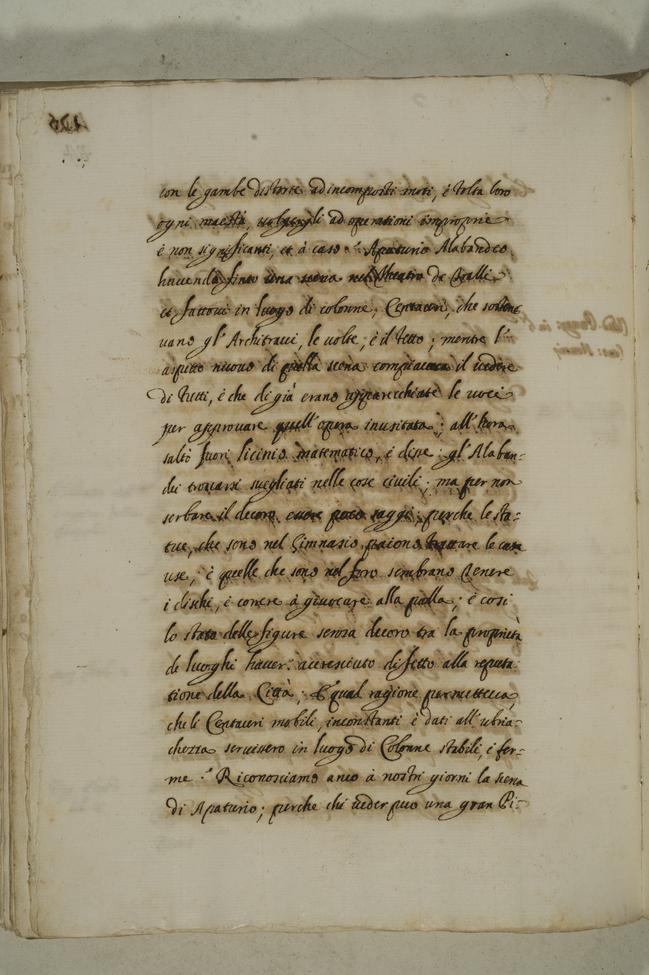 con le gambe distorte ad incomposti moti, è tolta loro
ogni maestà, ad operationi improprie
è non significanti, et à caso. Apaturio Alabandeo
havendo finto una scena nel theatro de Tralli
et fattovi in luogo di colonne, Centauri, che soste
vano gl'Architravi, le volte, è il tetto; mentre l'
aspetto nuovo di quella scena compiaceva il vedere
di tutti, è che di già erano apparecchiate le voci
per approvare quell'opera inusitata; all'hora
saltò fuori licinio matematico, è disse: gl'Alaban=
dei trovarsi svegliati nelle cose civili; ma per non
serbare il decoro, essere poco saggi; perche le sta=
tue, che sono nel Gimnasio paiono trattare le cau
use, è quelle che sono nel foro sembrano tenere
i dischi, è correre à giuocare alla palla; è cosi
lo stato delle figure senza decoro tra la proprietà
de luoghi haver accresciuto difetto alla reputa
tione della Città; E qual ragione permetteva,
che li Centauri mobili, inconstanti è dati all'ubria=
chezza servissero in luogo di Colonne stabili, è fer=
me. Riconosciamo anco à nostri giorni la scena
di Apaturio; perche chi veder può una gran Pi=